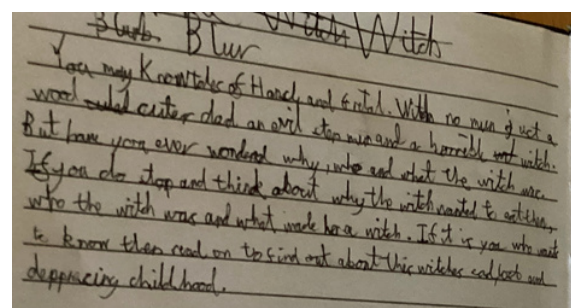 Blur Witch
You may Know tales of Hancl and Gretal. With no mum just a
wood cuter dad an evil step mum and a horrible witch.
But have you ever wonderd why, who and what the witch was.
If you do stop and think about why the witch wanted to eat them,
who the witch was and what made her a witch. If it is you who want
to know then read on to find out about this witches and
deppracing childhood.